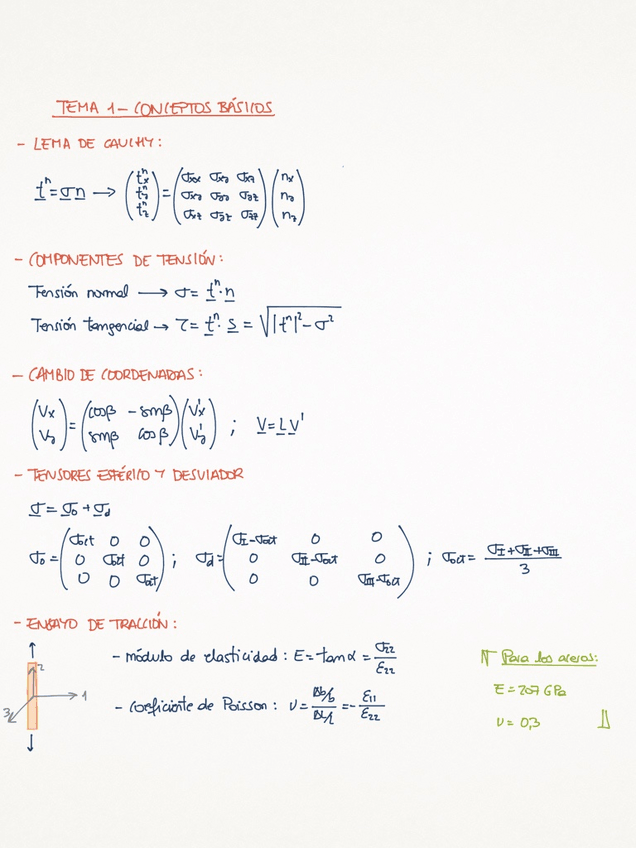 TEMA 1 – CONCEPTOS BÁSICOS
- LEMA DE CAUCHY:
t^n = σ n → (t^n_x; t^n_y; t^n_z) = (σxx σxy σxz; σxy σyy σyz; σxz σyz σzz) (nx; ny; nz)
- COMPONENTES DE TENSIÓN:
Tensión normal → σ = t^n · n
Tensión tangencial → τ = t^n · s = √(|t^n|² - σ²)
- CAMBIO DE COORDENADAS:
(Vx; Vy) = (cosβ -senβ; senβ cosβ) (V'x; V'y) ; V = L V'
- TENSORES ESFÉRICO Y DESVIADOR
σ = σo + σd
σo = (σoct 0 0; 0 σoct 0; 0 0 σoct) ; σd = (σI-σoct 0 0; 0 σII-σoct 0; 0 0 σIII-σoct) ; σoct = (σI+σII+σIII)/3
- ENSAYO DE TRACCIÓN:
2
1
3
- módulo de elasticidad: E = tanα = σ22/ε22
- coeficiente de Poisson: ν = (Δb/b)/(ΔL/L) = -ε11/ε22
Para los aceros:
E = 207 GPa
ν = 0,3